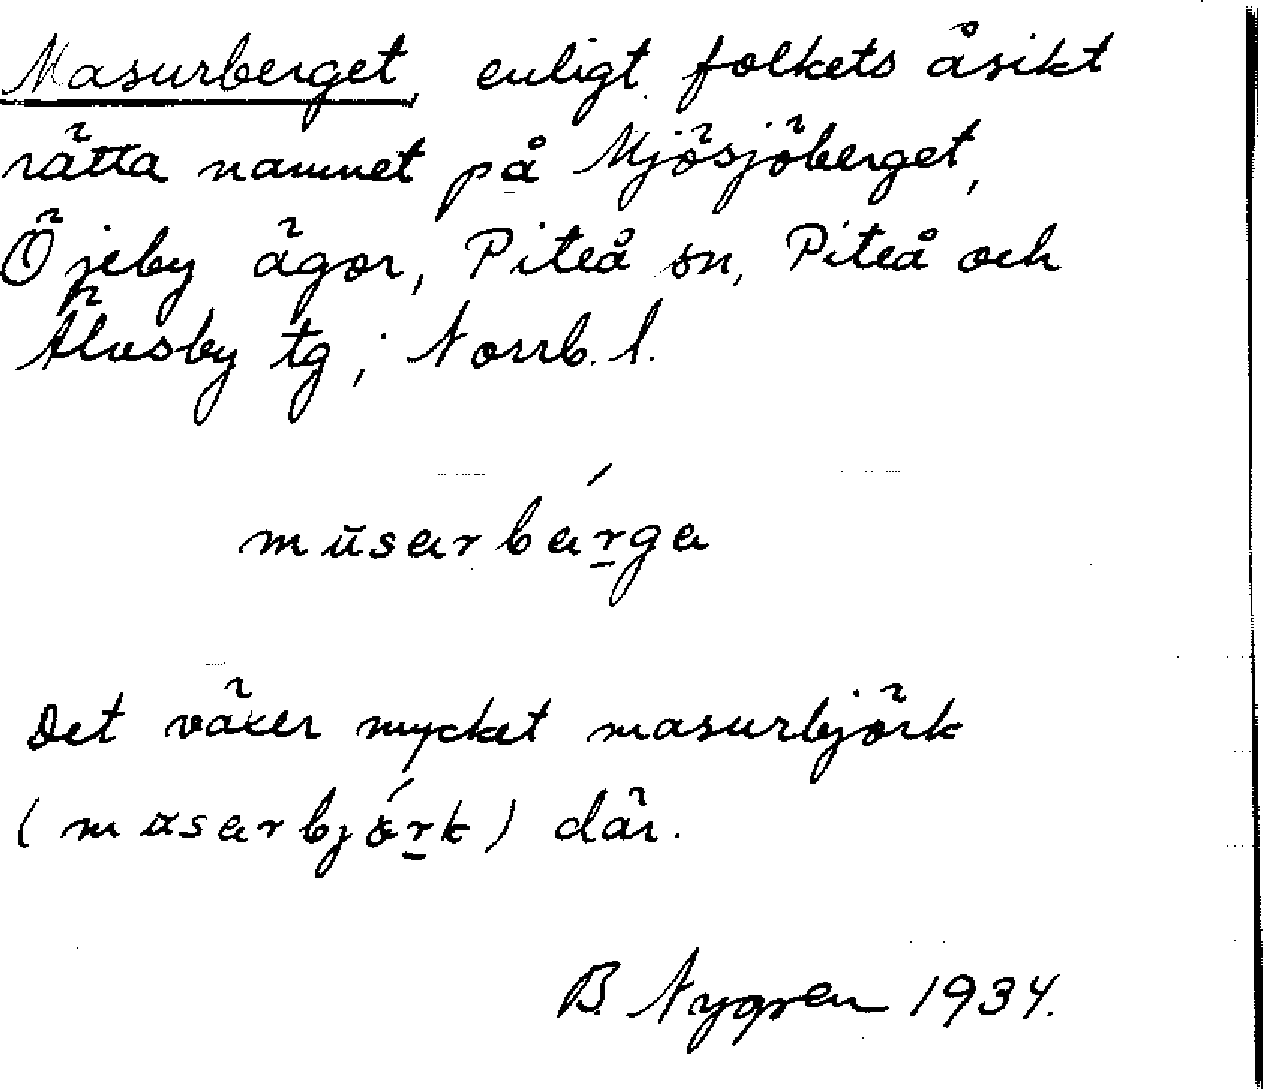 Masurberget, enligt folkets åsikt
rätta namnet på Mjösjöberget,
Öjeby ägor, Piteå sn, Piteå och
Älvsby tg, Norrb. l.
mūsarbárga
Det växer mycket masurbjörk
(musarbjórk) där.
B. Nygren 1934.